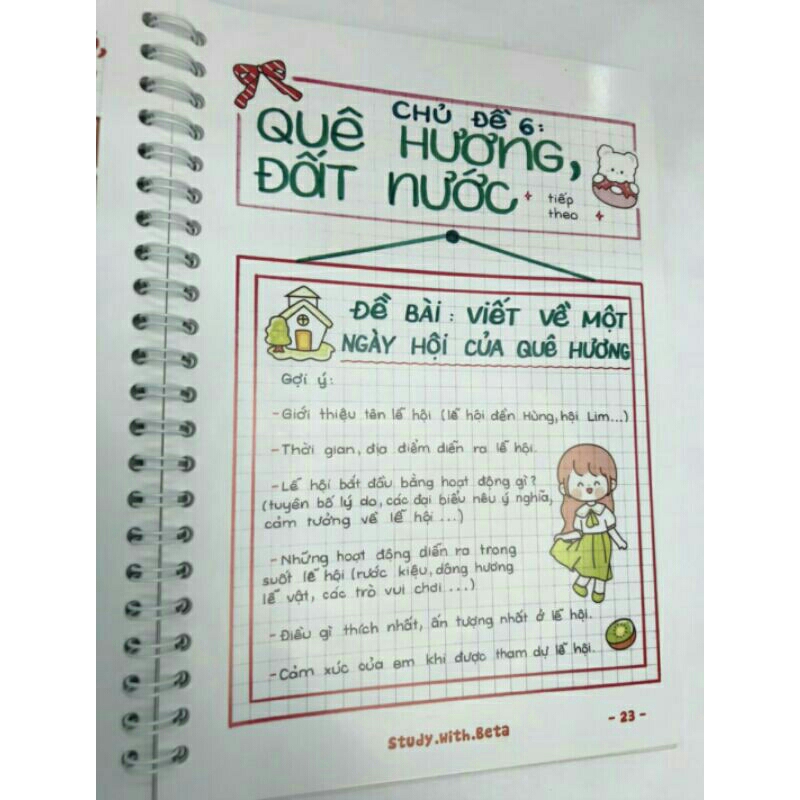 CHỦ ĐỀ 6:
QUÊ HƯƠNG,
ĐẤT NƯỚC
tiếp
theo
ĐỀ BÀI: VIẾT VỀ MỘT
NGÀY HỘI CỦA QUÊ HƯƠNG
Gợi ý:
- Giới thiệu tên lễ hội (lễ hội đền Hùng, hội Lim...)
- Thời gian, địa điểm diễn ra lễ hội.
- Lễ hội bắt đầu bằng hoạt động gì?
(tuyên bố lý do, các đại biểu nêu ý nghĩa,
cảm tưởng về lễ hội ...)
- Những hoạt động diễn ra trong
suốt lễ hội (rước kiệu, dâng hương
lễ vật, các trò vui chơi ...)
- Điều gì thích nhất, ấn tượng nhất ở lễ hội.
- Cảm xúc của em khi được tham dự lễ hội.
Study.With.Beta
- 23 -